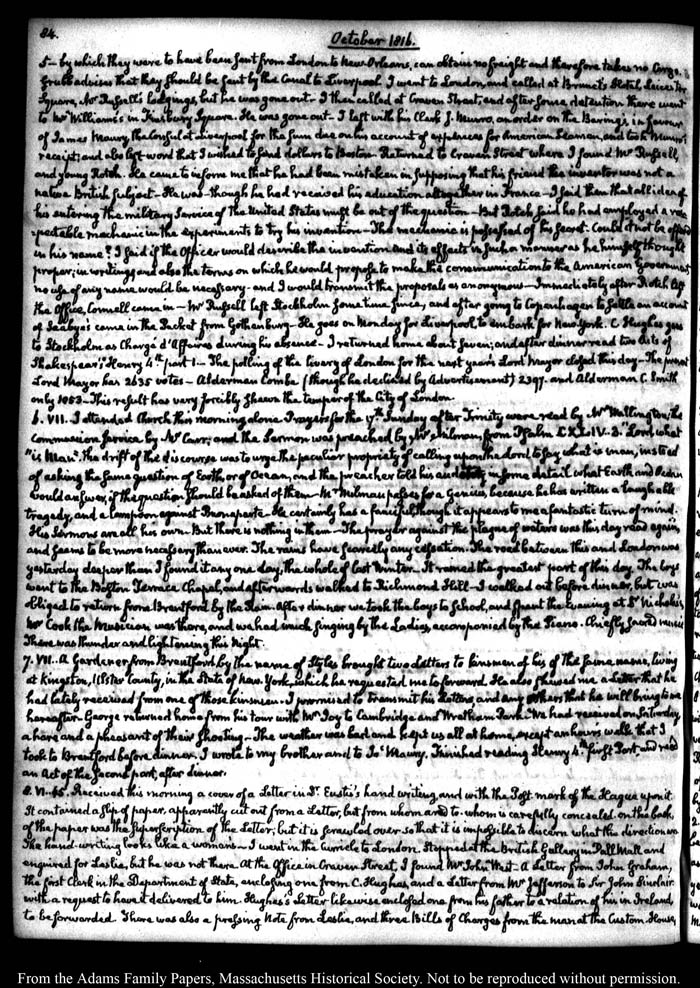 84.
October 1816.
5— by which they were to have been sent from London to New Orleans, can obtain no freight and therefore takes no Cargo.
Grubb advises that they should be sent by the Canal to Liverpool. I went to London, and called at Brunet's Hotel, Leicester
Square, Mr Russell's lodgings, but he was gone out— I then called at Craven Street, and after some detention there went
to Mr Williams's in Finsbury Square. He was gone out— I left with his Clerk J. Munro, an order on the Barings in favour
of James Maury, the Consul at Liverpool for the sum due on his account of expences for American Seamen, and took Munro's
receipt; and also left word that I wished to send dollars to Boston— Returned to Craven Street where I found Mr Russell,
and young Rotch. He came to inform me that he had been mistaken in supposing that his friend the inventor was not a
native British subject— He was— though he had received his education altogether in France— I said then that all idea of
his entering the military service of the United States must be out of the question— But Rotch said he had employed a
mechanic in the experiments to try his invention— The mechanic is possessed of his secret. Could it not be
in his name? I said if the Officer would describe the invention and its effects in such manner as he himself thought
proper, in writing, and also the terms on which he would propose to make the communication to the American Government
no use of any name would be necessary— and I would transmit the proposals as anonymous— Immediately after Rotch left
the Office, Connell came in— Mr Russell left Stockholm some time since, and after going to Copenhagen to settle an account
of Saabye's came in the Packet from Gothenburg— He goes on Monday for Liverpool, to embark for New York. C. Hughes goes
to Stockholm as Chargé d'Affaires during his absence— I returned home about seven; and after dinner read two Acts of
Shakespear's Henry 4th part 1.— The polling of the livery of London for the next year's Lord Mayor closed this day— The present
Lord Mayor has 2635 votes— Alderman Combe (though he declined by Advertisement) 2397. and Alderman C. Smith
only 1083— This result has very forcibly shewn the temper of the City of London.
6. VII. I attended Church this morning alone. Prayers for the 17th Sunday after Trinity were read by Mr Wallington, the
Communion service by Mr Carr; and the Sermon was preached by Mr Milman, from Psalm CXLIV. 3. "Lord what
"is Man". The drift of the discourse was to urge the peculiar propriety of calling upon the Lord to say what is man, instead
of asking the same question of Earth, or of Ocean, and the preacher told his auditory in some detail what Earth and Ocean
would answer, if the question should be asked of them— Mr Milman passes for a Genius, because he has written a laughable
tragedy, and a lampoon against Buonaparte. He certainly has a fanciful though it appears to me a fantastic turn of mind.
His Sermons are all his own. But there is nothing in them— The prayer against the plague of waters was this day read again,
and seems to be more necessary than ever. The rains have scarcely any cessation. The road between this and London was
yesterday deeper than I found it any one day, the whole of last Winter. It rained the greatest part of this day. The boys
went to the Boston Terrace Chapel, and afterwards walked to Richmond Hill— I walked out before dinner, but was
obliged to return from Brentford by the Rain. After dinner we took the boys to School, and spent the Evening at Dr Nicholas's.
Mr Cook the Musician was there, and we had much singing by the Ladies, accompanied by the Piano. Chiefly sacred music.
There was thunder and lightening this Night.
7. VII. A Gardener, from Brentford, by the name of Styles brought two Letters to kinsmen of his of the same name, living
at Kingston, Ulster County, in the State of New-York, which he requested me to forward. He also shewed me a Letter that he
had lately received from one of those kinsmen. I promised to transmit his Letters, and any others that he will bring to me
hereafter. George returned home from his tour with Mr Joy to Cambridge and Wrotham Park. We had received on Saturday
a hare and a pheasant of their shooting— The weather was bad and kept us all at home, except an hours walk that I
took to Brentford before dinner. I wrote to my brother and to Js Maury. Finished reading Henry 4th first Part and read
an Act of the Second part, after dinner.
8. Received this morning a cover of a Letter in Dr Eustis's hand writing, and with the Post mark of the Hague upon it.
It contained a slip of paper, apparently cut out from a Letter, but from whom and to whom is carefully concealed. on the back
of the paper was the Superscription of the Letter; but it is scrawled over so that it is impossible to discern what the direction was
The hand-writing looks like a woman's— I went in the curricle to London. Stopped at the British Gallery in Pall Mall and
enquired for Leslie, but he was not there. At the Office in Craven Street, I found Mr John West— A Letter from John Graham,
the first Clerk in the Department of State, enclosing one from C. Hughes, and a Letter from Mr Jefferson to Sir John Sinclair
with a request to have it delivered to him. Hughes's Letter likewise enclosed one from his father to a relation of his in Ireland,
to be forwarded. There was also a pressing Note from Leslie, and three Bills of Charges from the man at the Custom House,
From the Adams Family Papers, Massachusetts Historical Society. Not to be reproduced without permission.